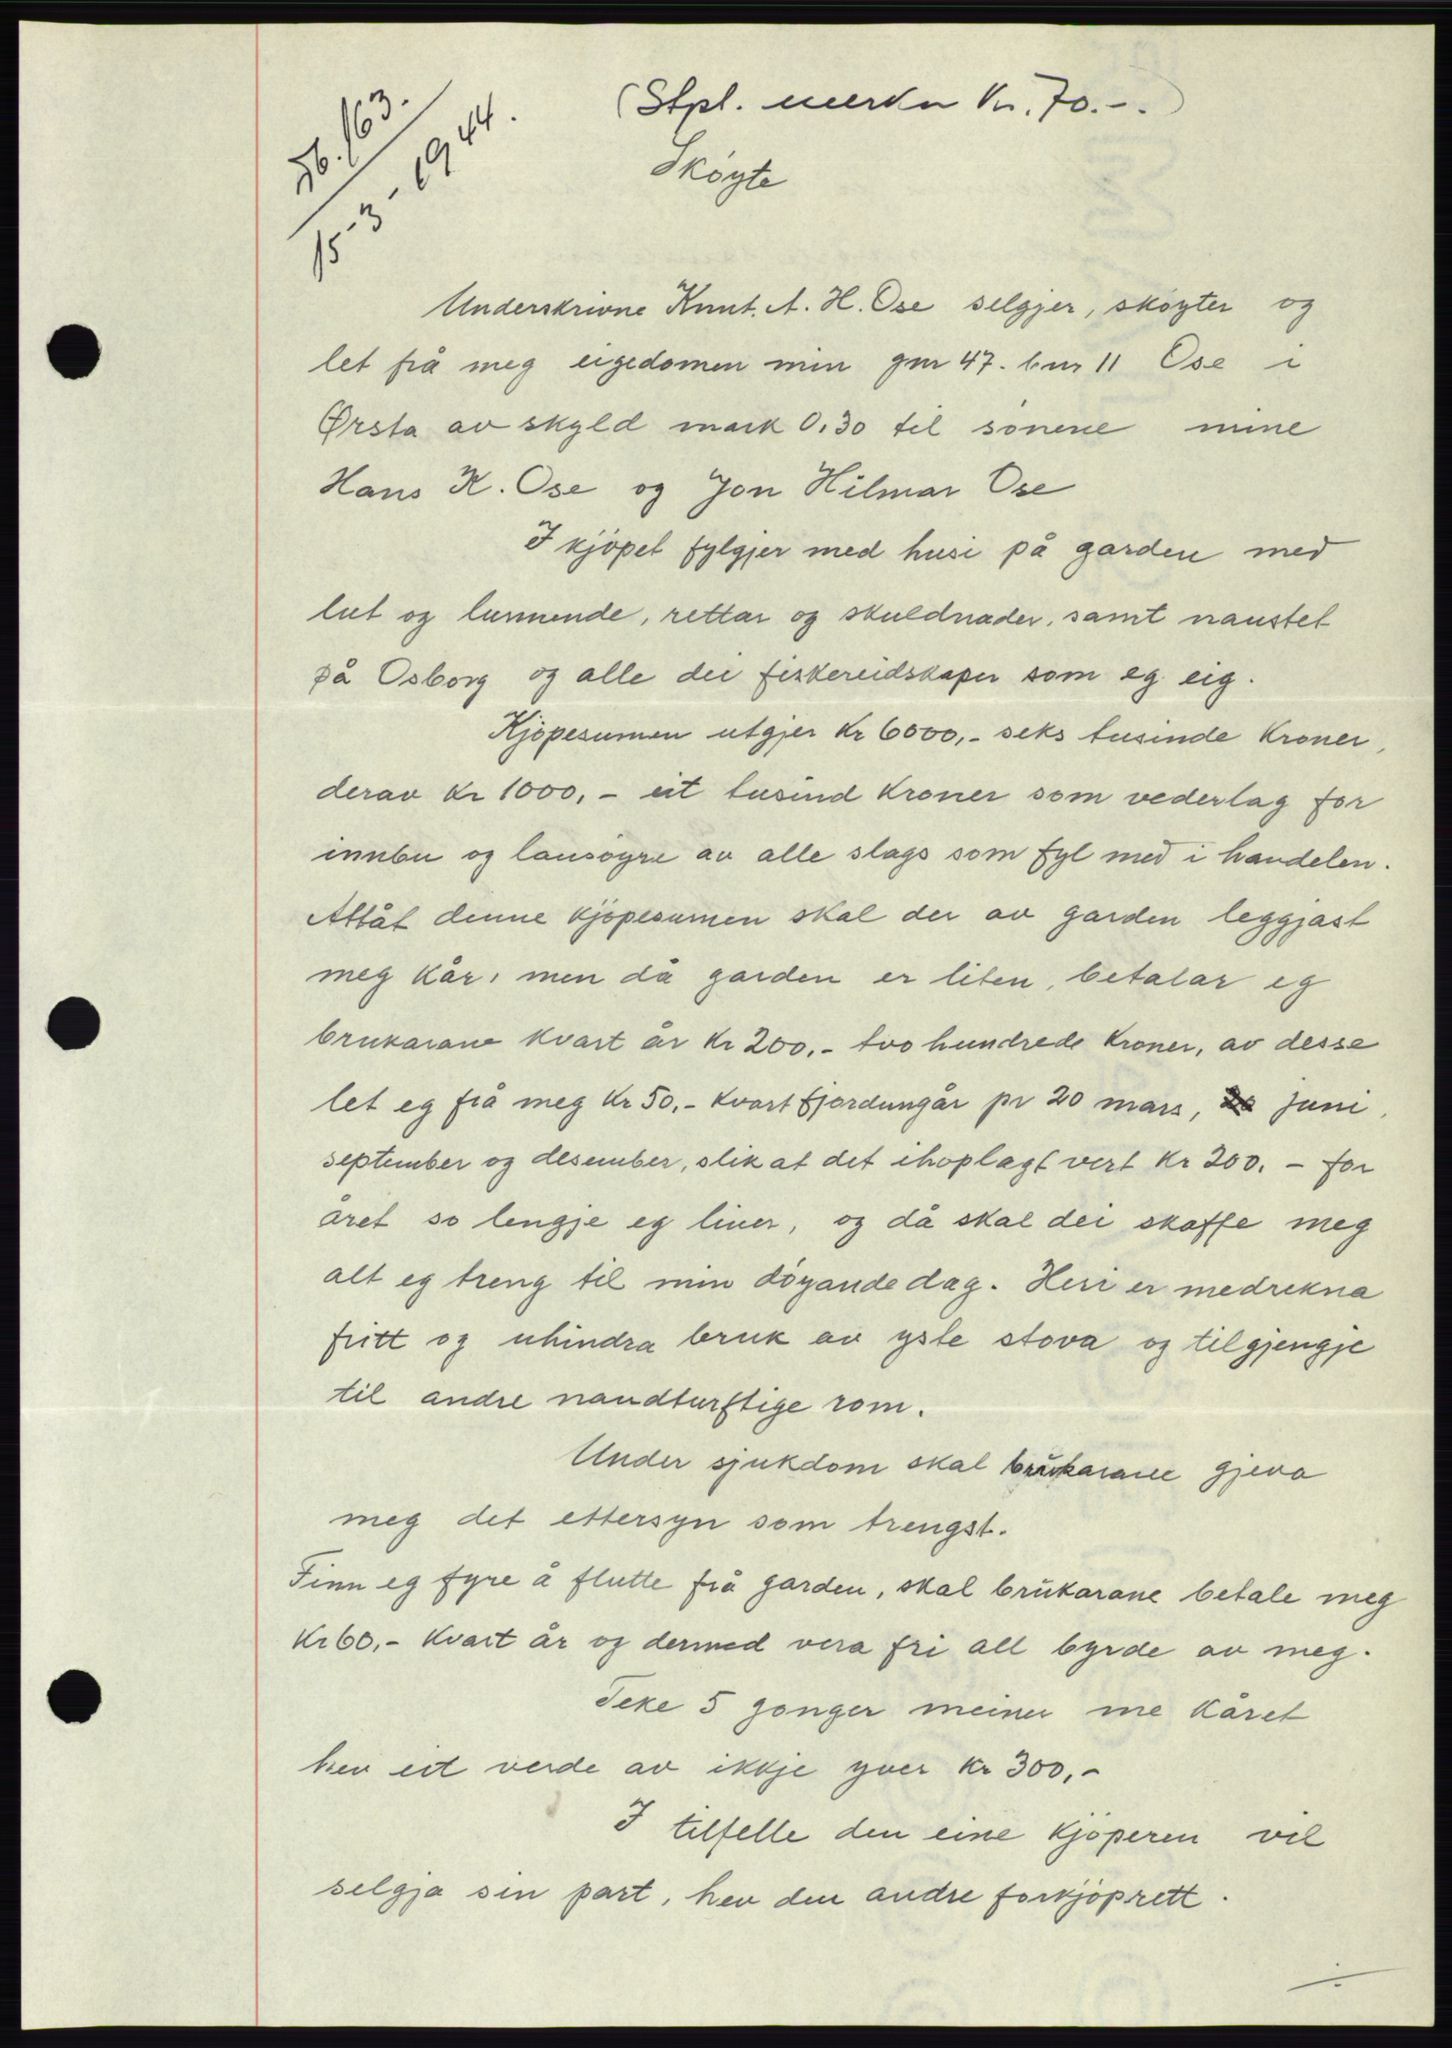 (Stpl. merker kr. 70.-.)
Jb. 163.
15-3-1944.
Skøyte
Underskrivne Knut. A. H. Ose selgjer, skøyter og
let frå meg eigedomen min gnr 47. bnr 11 Ose i
Ørsta av skyld mark 0,30 til sønene mine
Hans K. Ose og Jon Hilmar Ose
I kjøpet fylgjer med husi på garden med
lut og lunnende, rettar og skuldnader, samt naustet
på Osborg og alle dei fiskereidskaper som eg eig.
Kjøpesumen utgjer kr 6000,- seks tusinde kroner,
derav kr 1000,- eit tusind kroner som vederlag for
innbu og lausøyre av alle slags som fyl med i handelen.
Attåt denne kjøpesumen skal der av garden leggjast
meg kår, men då garden er liten, betalar eg
brukarane kvart år kr 200,- tvo hundrede kroner, av desse
let eg frå meg kr 50,- kvart fjordungår pr 20 mars, juni,
september og desember, slik at det ihoplagt vert kr 200,- for
året so lengje eg liver, og då skal dei skaffe meg
alt eg treng til min døyande dag. Heri er medrekna
fritt og uhindra bruk av yste stova og tilgjengje
til andre naudturftige rom.
Under sjukdom skal brukarane gjeva
meg det ettersyn som trengst.
Finn eg fyre å flutte frå garden, skal brukarane betale meg
kr 60,- kvart år og dermed vera fri all byrde av meg.
Teke 5 gonger meiner me kåret
hev eit verde av ikkje yver kr 300,-
I tilfelle den eine kjøperen vil
selgja sin part, hev den andre forkjøprett.